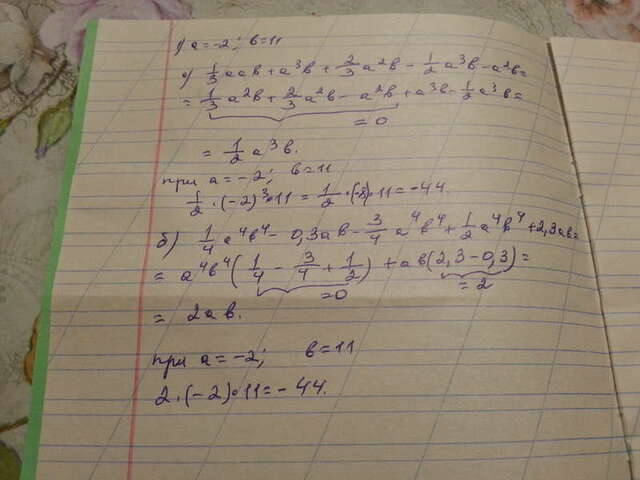 1) a = -2; в = 11
а) 1/3 aaв + a³в + 2/3 a²в - 1/2 a³в - a²в =
= 1/3 a²в + 2/3 a²в - a²в + a³в - 1/2 a³в =
= 0
= 1/2 a³в.
при a = -2; в = 11
1/2 · (-2)³ · 11 = 1/2 · (-8) · 11 = -44.
б) 1/4 a⁴в⁴ - 0,3aв - 3/4 a⁴в⁴ + 1/2 a⁴в⁴ + 2,3aв =
= a⁴в⁴(1/4 - 3/4 + 1/2) + aв(2,3 - 0,3) =
=0 = 2
= 2aв.
при a = -2; в = 11
2 · (-2) · 11 = -44.